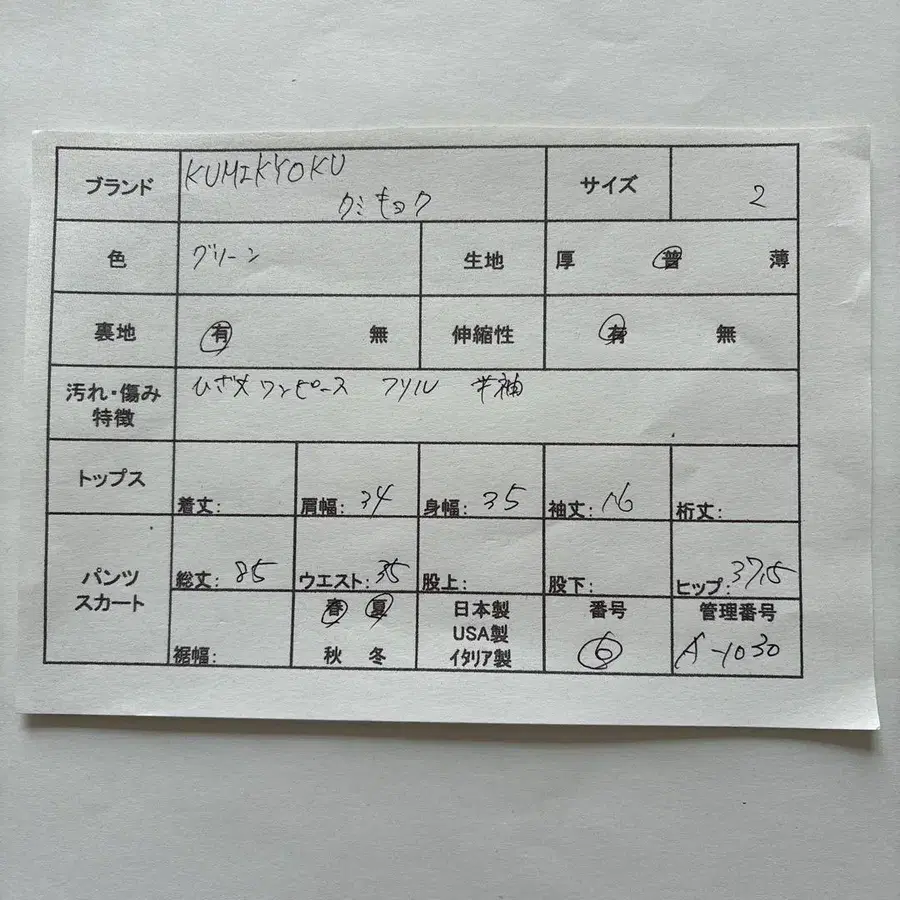 ブランド KUMIKYOKU サイズ 2
クミキョク
色 グリーン 生地 厚 普 薄
裏地 有 無 伸縮性 有 無
汚れ・傷み ひざ丈ワンピース フリル 半袖
特徴
トップス 着丈: 肩幅: 34 身幅: 35 袖丈: 16 裄丈:
パンツ 総丈: 85 ウエスト: 35 股上: 股下: ヒップ: 37.5
スカート
春 夏 日本製 番号 管理番号
USA製
裾幅: 秋 冬 イタリア製 6 A-1030